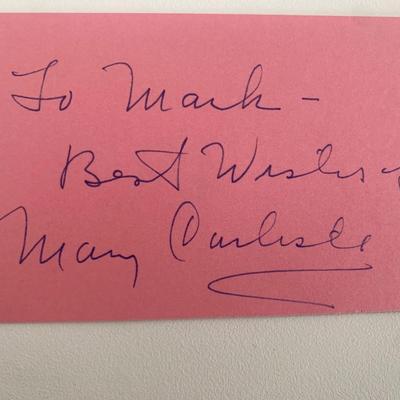 To Mark -
Best Wishes -
Mary Carlisle